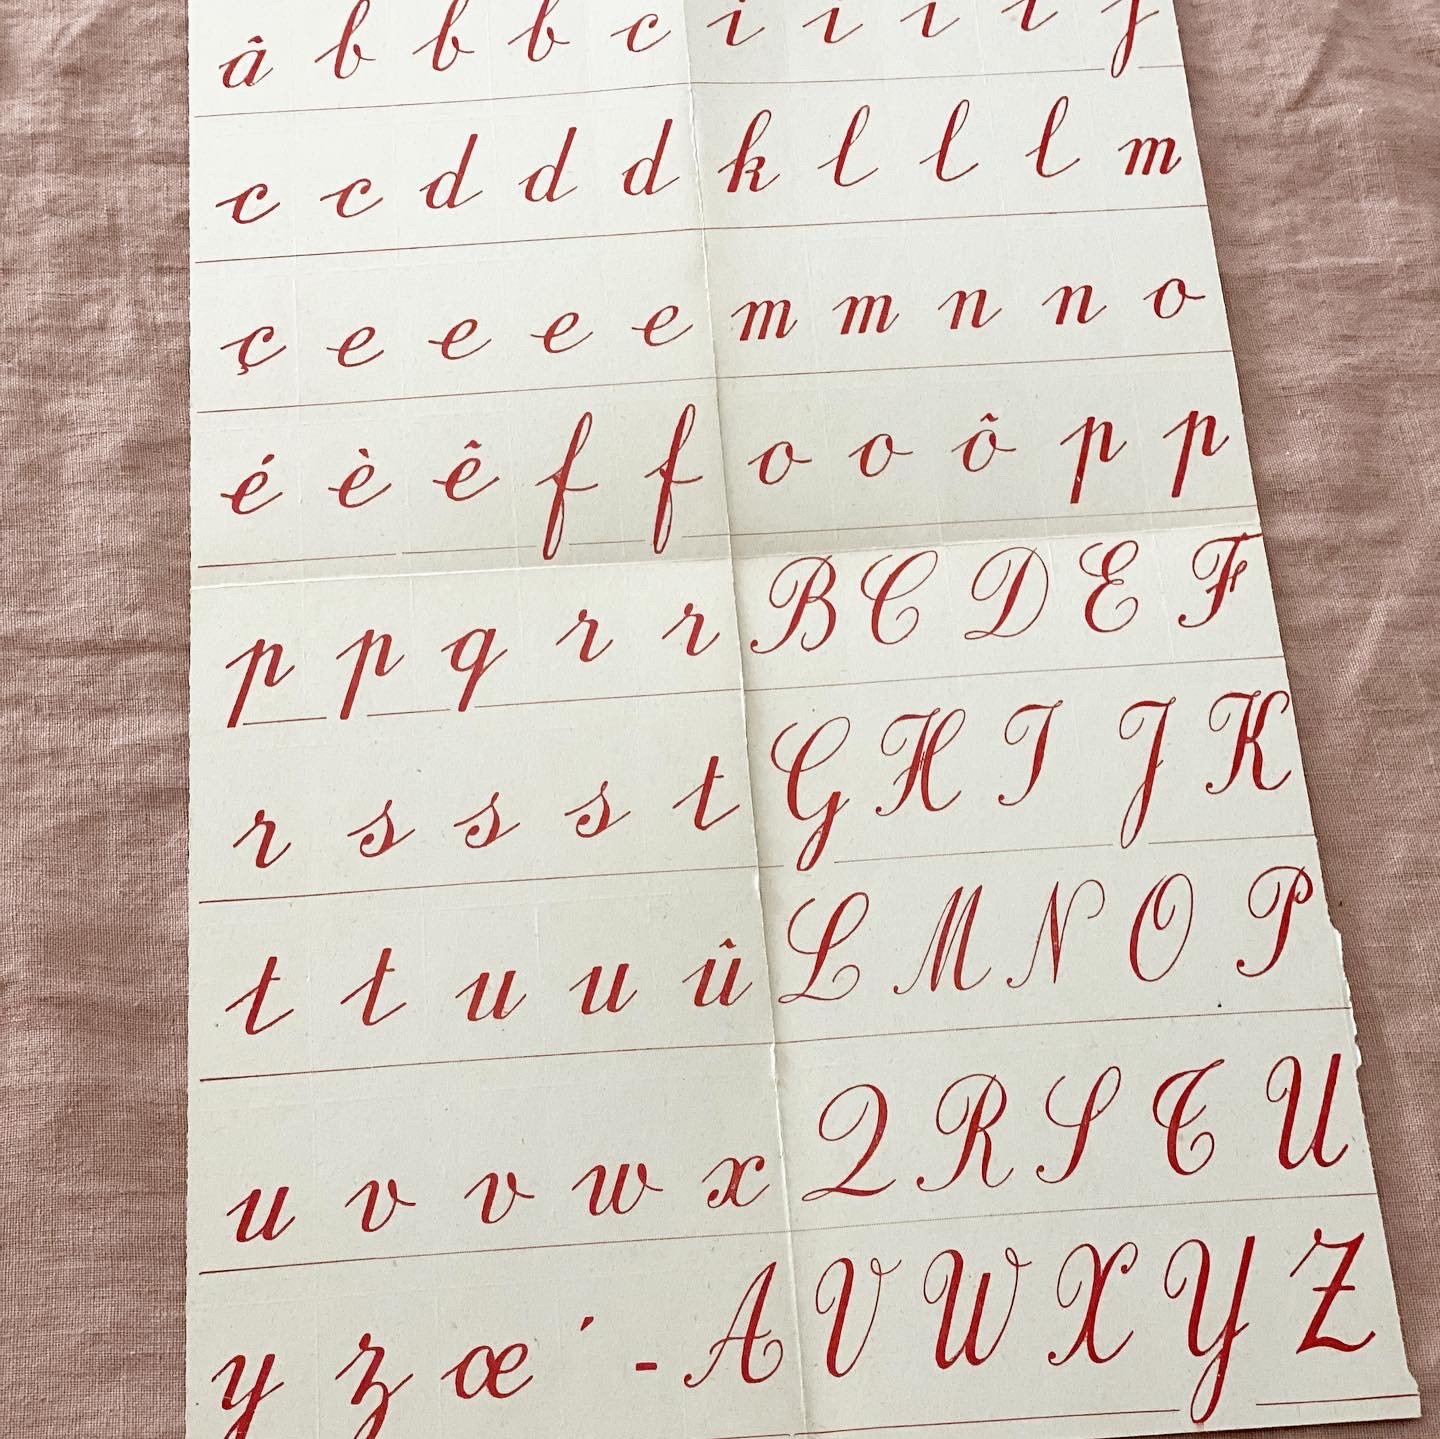 â b b b c i i i i j
c c d d d k l l l m
ç e e e e m m n n o
é è ê f f o o ô p p
p p q r r B C D E F
r s s s t G H I J K
t t u u û L M N O P
u v v w x Q R S T U
y z œ ´ - A V W X Y Z